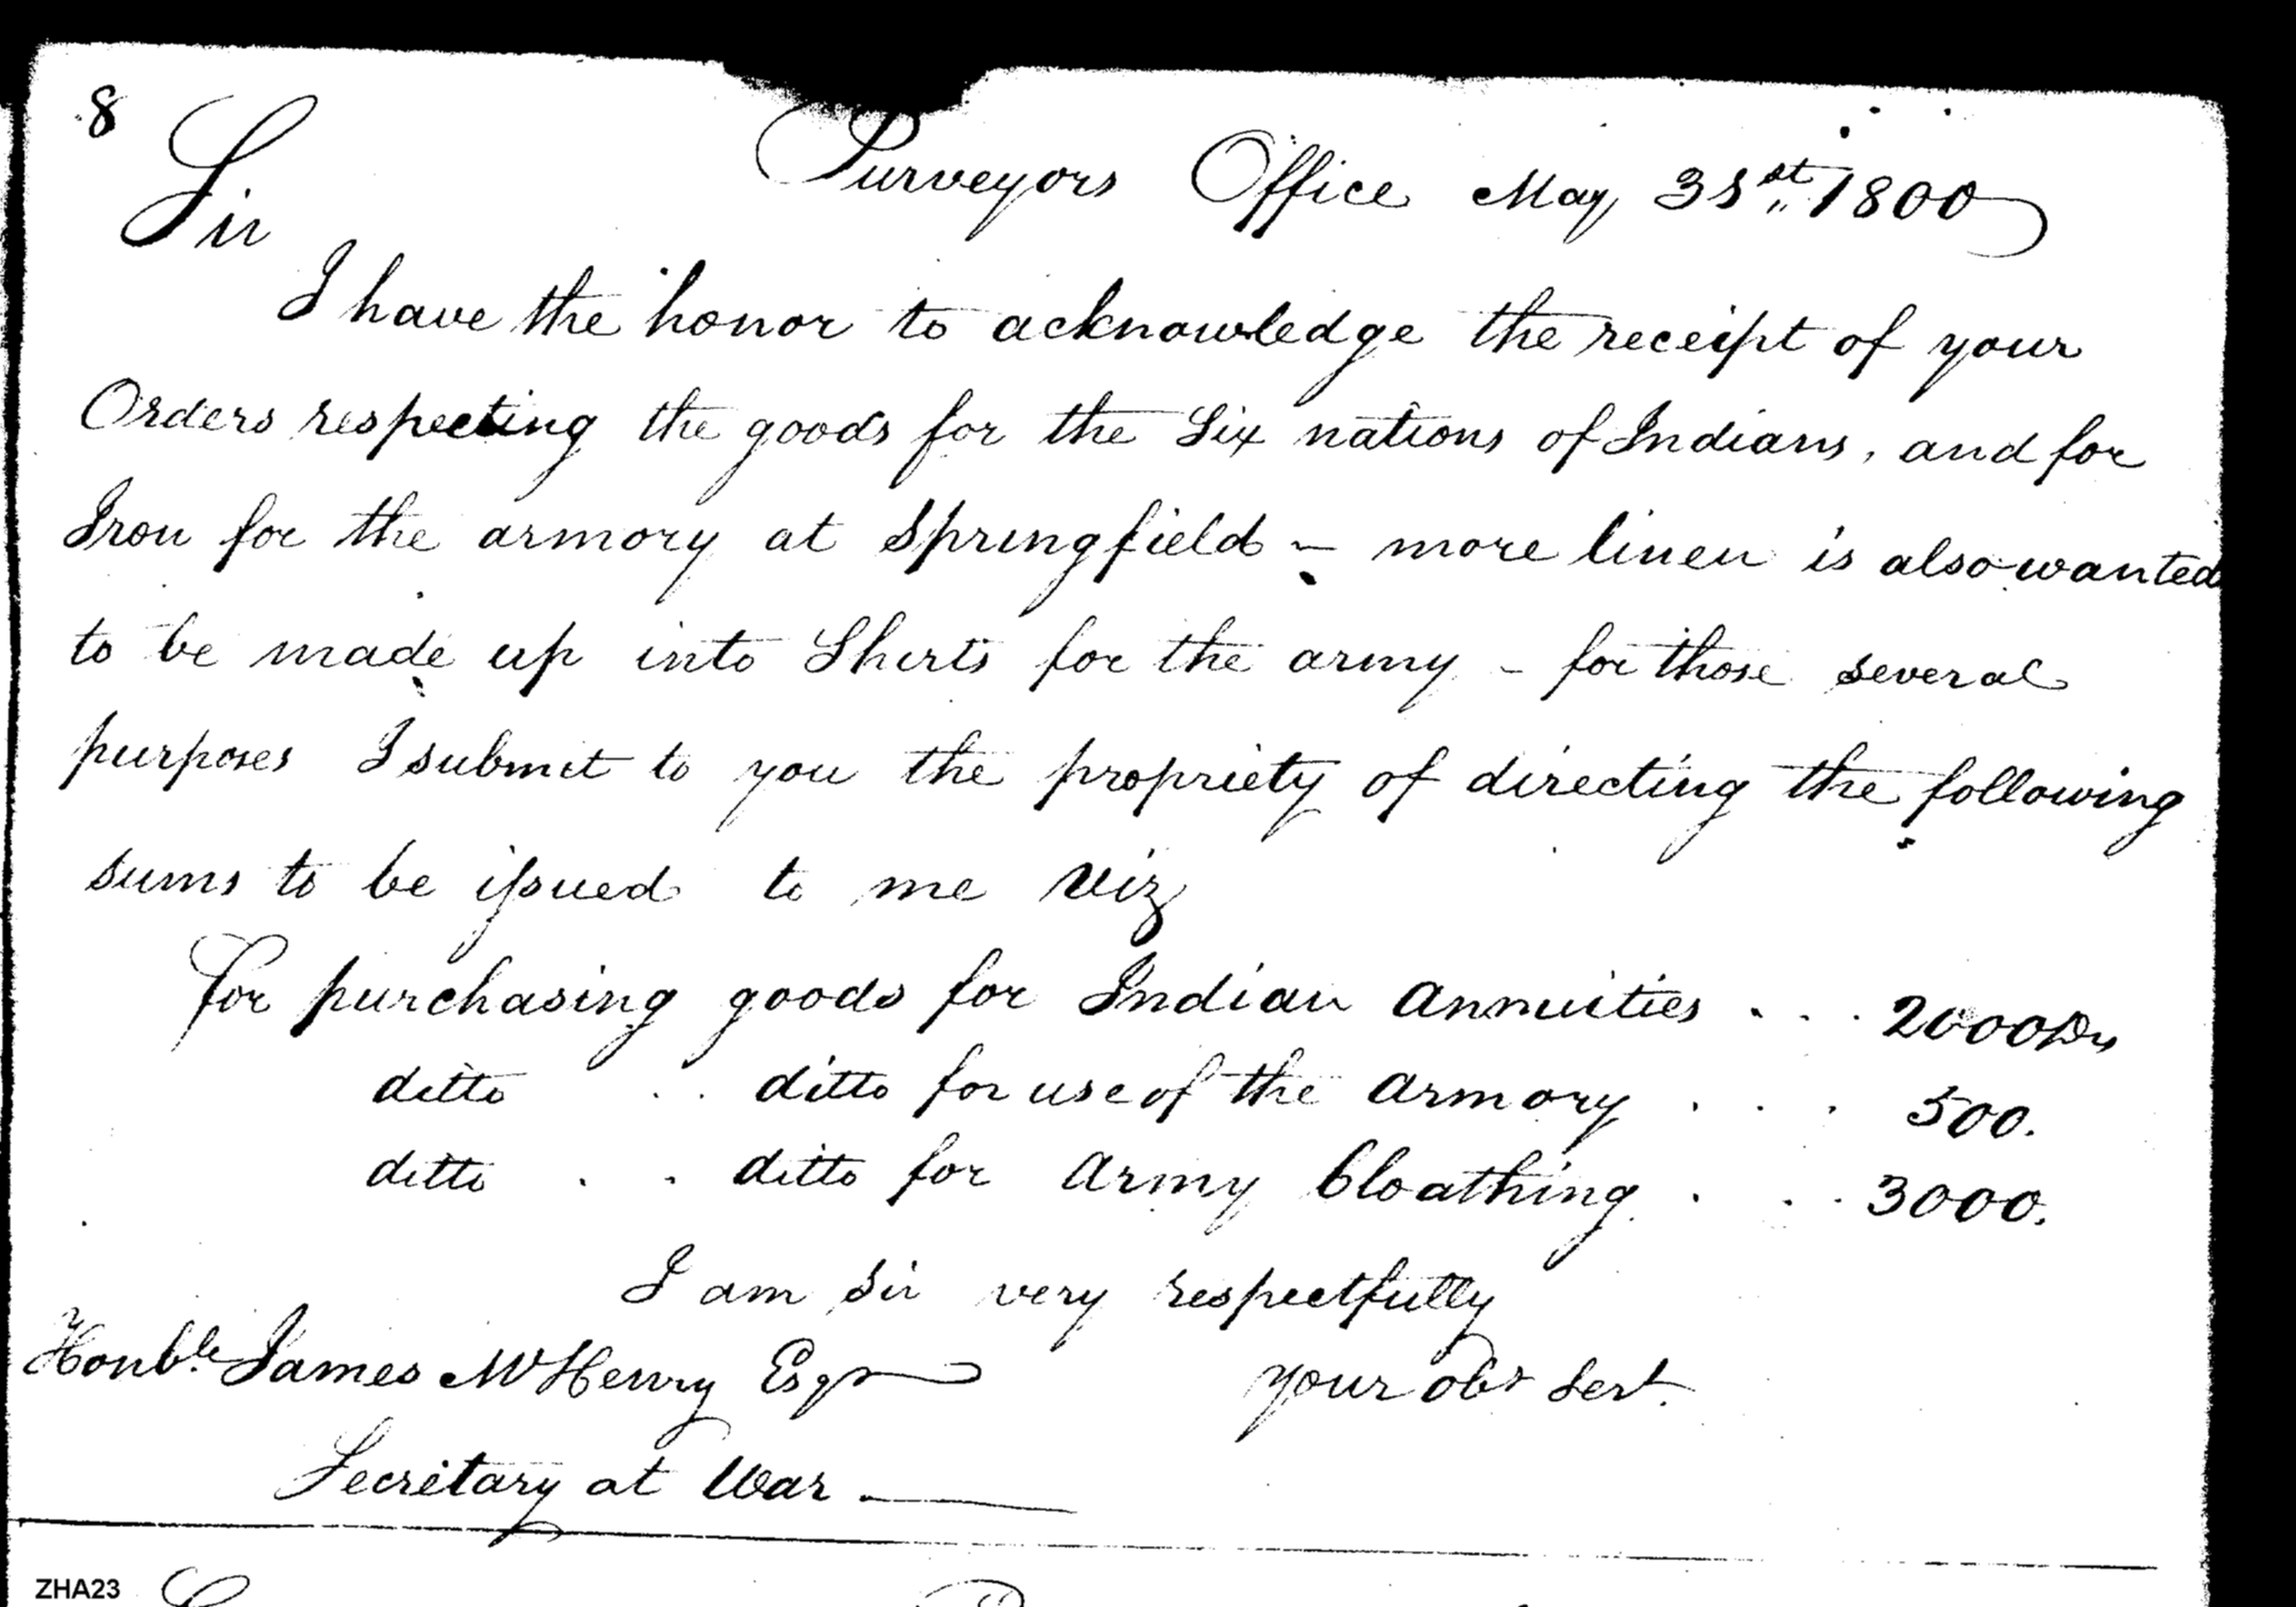 8
Purveyors Office May 31st 1800
Sir
I have the honor to acknowledge the receipt of your
Orders respecting the goods for the Six nations of Indians, and for
Iron for the armory at Springfield - more linen is also wanted
to be made up into Shirts for the army - for those several
purposes I submit to you the propriety of directing the following
sums to be issued to me Viz
For purchasing goods for Indian Annuities . . . 2000 Drs
ditto . . ditto for use of the Armory . . . 500.
ditto . . ditto for Army Cloathing . . . 3000.
I am Sir very respectfully
Honble James McHenry Esqr your obt Sert.
Secretary at War
ZHA23